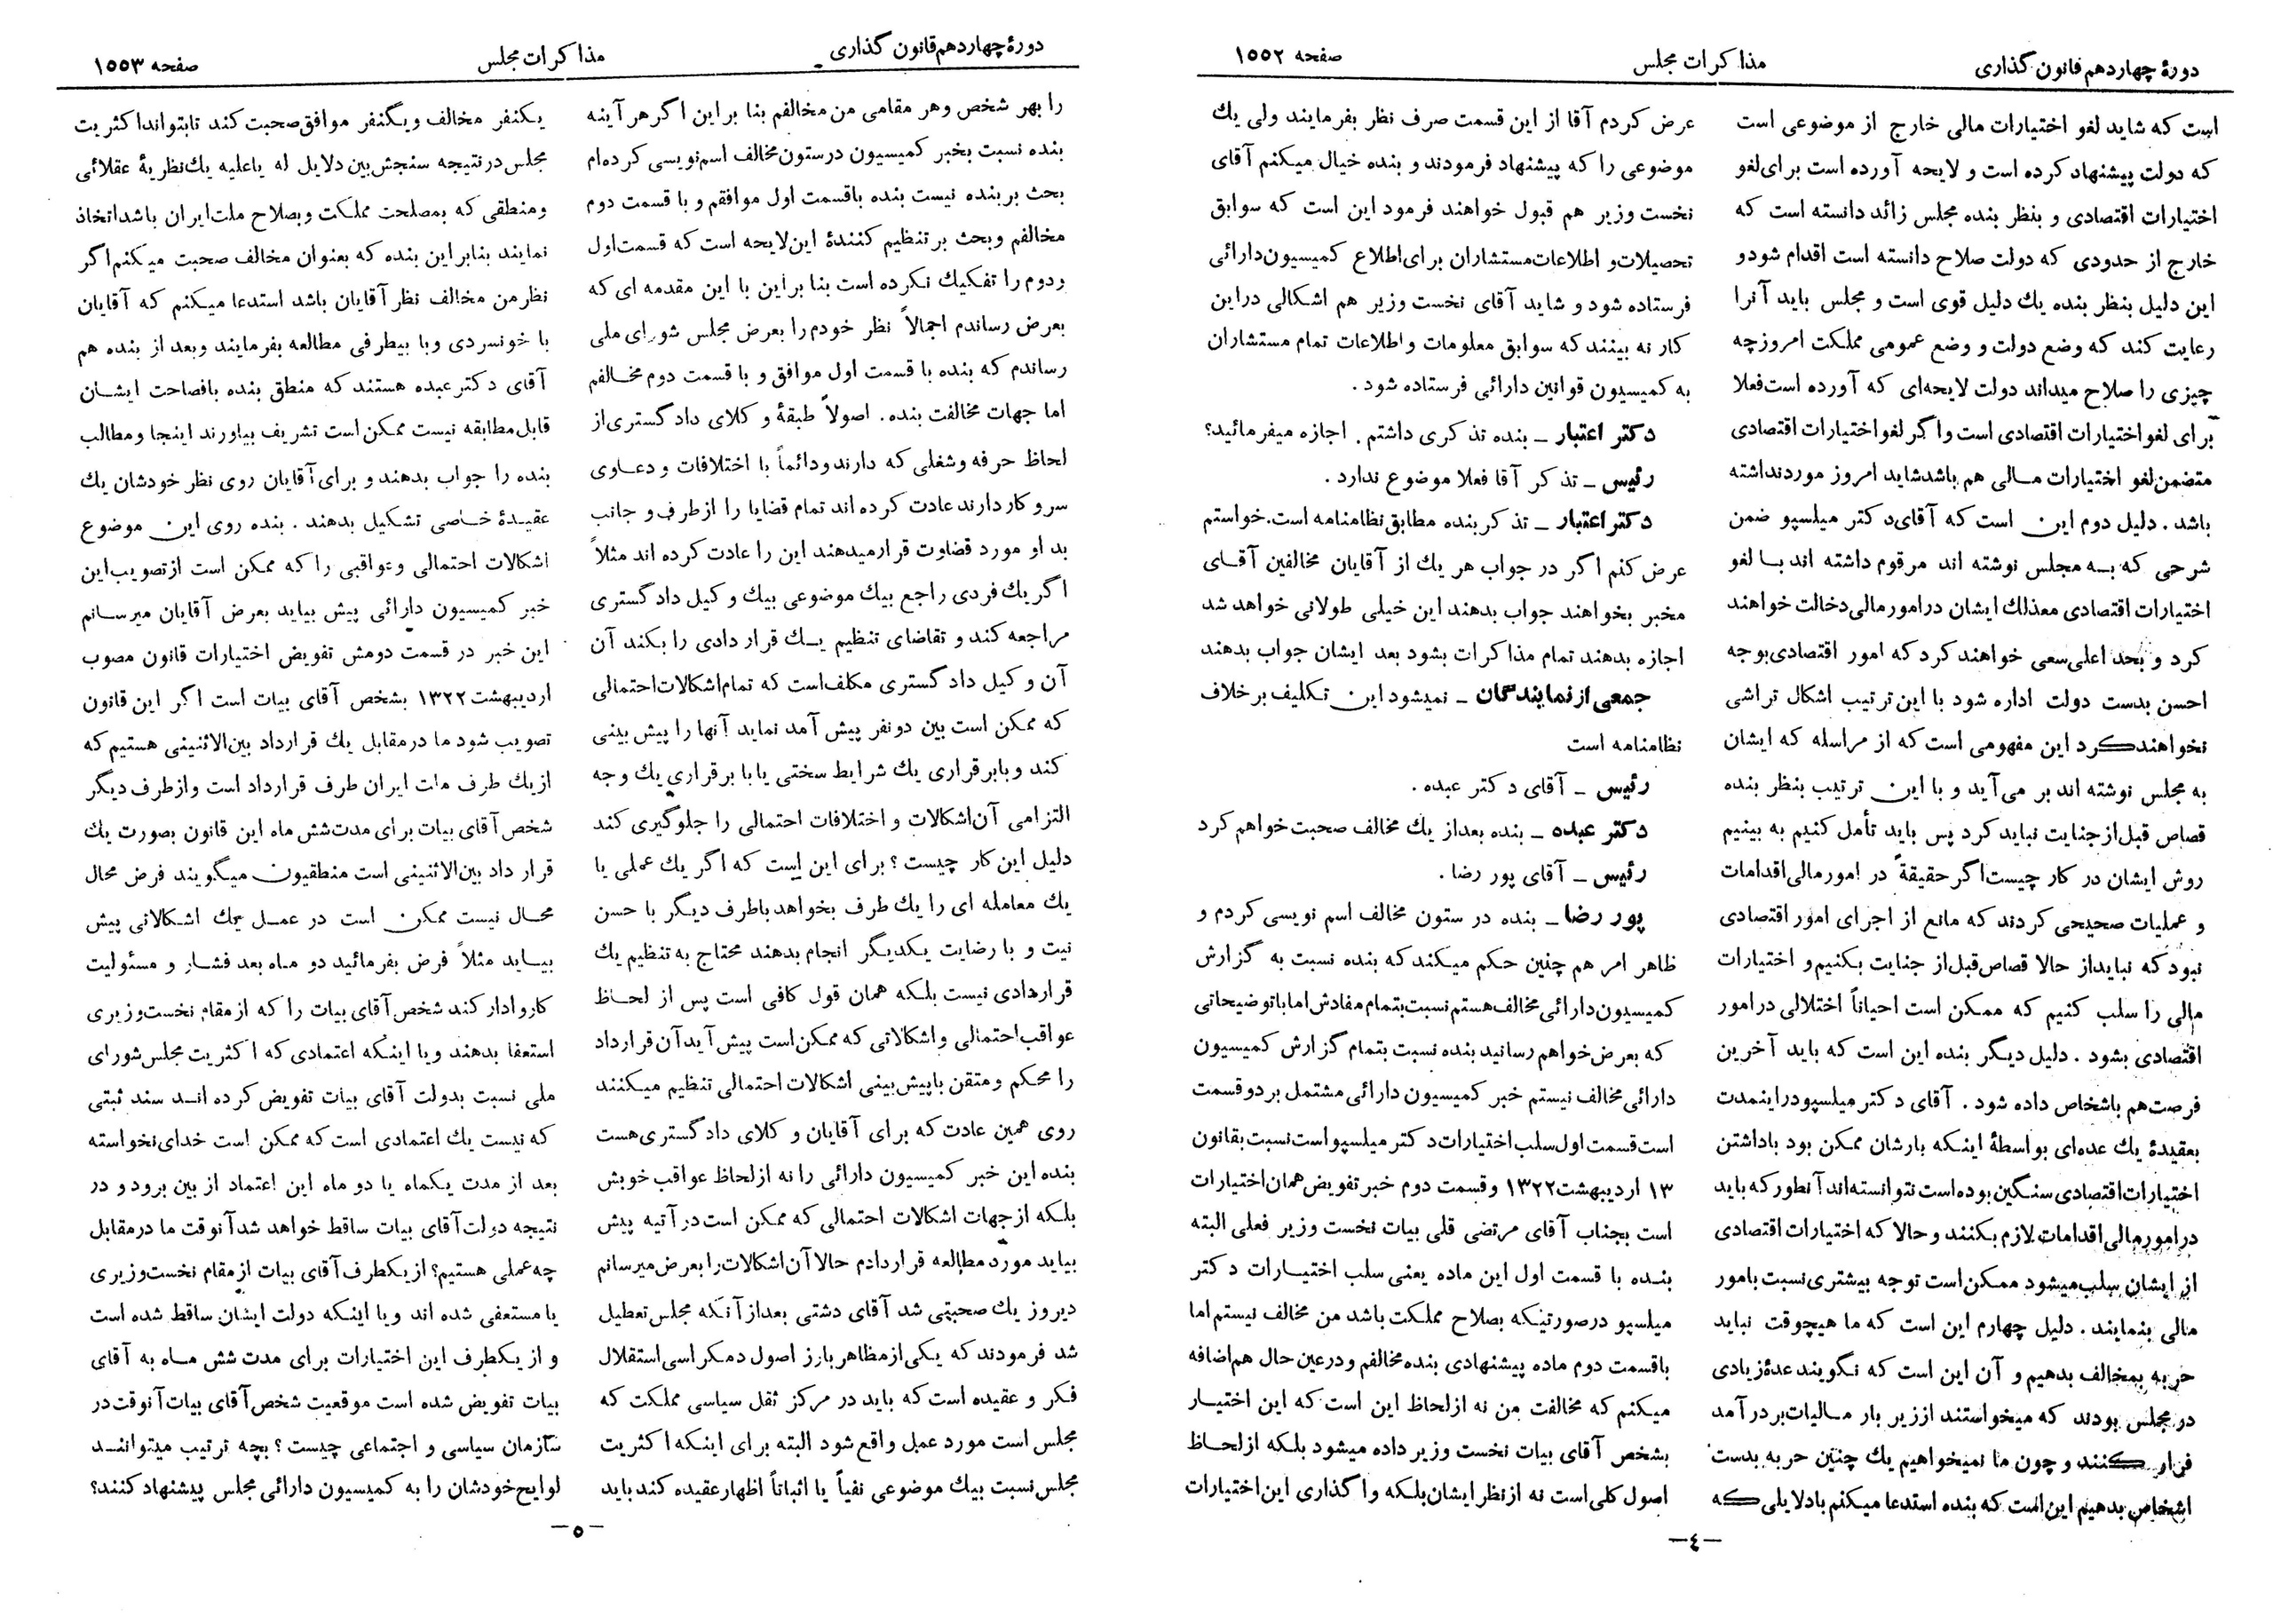 دورهٔ چهاردهم قانون گذاری
مذاکرات مجلس
صفحه ۱۵۵۲
است که شاید لغو اختیارات مالی خارج از موضوعی است
که دولت پیشنهاد کرده است و لایحه آورده است برای لغو
اختیارات اقتصادی و بنظر بنده مجلس زائد دانسته است که
خارج از حدودی که دولت صلاح دانسته است اقدام شود و
این دلیل بنظر بنده یك دلیل قوی است و مجلس باید آنرا
رعایت کند که وضع دولت و وضع عمومی مملکت امروز چه
چیزی را صلاح میداند دولت لایحه‌ای که آورده است فعلا
برای لغو اختیارات اقتصادی است واگر لغو اختیارات اقتصادی
متضمن لغو اختیارات مالی هم باشد شاید امروز مورد نداشته
باشد . دلیل دوم این است که آقای دکتر میلسپو ضمن
شرحی که به مجلس نوشته اند مرقوم داشته اند با لغو
اختیارات اقتصادی معذلك ایشان در امور مالی دخالت خواهند
کرد و بحد اعلی سعی خواهند کرد که امور اقتصادی بوجه
احسن بدست دولت اداره شود با این ترتیب اشکال تراشی
نخواهند کرد این مفهومی است که از مراسله که ایشان
به مجلس نوشته اند بر می‌آید و با این ترتیب بنظر بنده
قصاص قبل از جنایت نباید کرد پس باید تأمل کنیم به بینیم
روش ایشان در کار چیست اگر حقیقةً در امور مالی اقدامات
و عملیات صحیحی کردند که مانع از اجرای امور اقتصادی
نبود که نباید از حالا قصاص قبل از جنایت بکنیم و اختیارات
مالی را سلب کنیم که ممکن است احیاناً اختلالی در امور
اقتصادی بشود . دلیل دیگر بنده این است که باید آخرین
فرصت هم باشخاص داده شود . آقای دکتر میلسپو در اینمدت
بعقیدهٔ یك عده‌ای بواسطهٔ اینکه بارشان ممکن بود باداشتن
اختیارات اقتصادی سنگین بوده است نتوانسته‌اند آنطور که باید
در امور مالی اقدامات لازم بکنند و حالا که اختیارات اقتصادی
از ایشان سلب میشود ممکن است توجه بیشتری نسبت بامور
مالی بنمایند . دلیل چهارم این است که ما هیچوقت نباید
حربه بمخالف بدهیم و آن این است که نگویند عدهٔ زیادی
در مجلس بودند که میخواستند از زیر بار مالیات بر در آمد
فرار کنند و چون ما نمیخواهیم یك چنین حربه بدست
اشخاص بدهیم این است که بنده استدعا میکنم بادلایلی که
عرض کردم آقا از این قسمت صرف نظر بفرمایند ولی یك
موضوعی را که پیشنهاد فرمودند و بنده خیال میکنم آقای
نخست وزیر هم قبول خواهند فرمود این است که سوابق
تحصیلات و اطلاعات مستشاران برای اطلاع کمیسیون دارائی
فرستاده شود و شاید آقای نخست وزیر هم اشکالی دراین
کار نه بینند که سوابق معلومات و اطلاعات تمام مستشاران
به کمیسیون قوانین دارائی فرستاده شود .
دکتر اعتبار ـ بنده تذکری داشتم . اجازه میفرمائید؟
رئیس ـ تذکر آقا فعلا موضوع ندارد .
دکتر اعتبار ـ تذکر بنده مطابق نظامنامه است. خواستم
عرض کنم اگر در جواب هر یك از آقایان مخالفین آقای
مخبر بخواهند جواب بدهند این خیلی طولانی خواهد شد
اجازه بدهند تمام مذاکرات بشود بعد ایشان جواب بدهند
جمعی از نمایندگان ـ نمیشود این تکلیف بر خلاف
نظامنامه است
رئیس ـ آقای دکتر عبده .
دکتر عبده ـ بنده بعد از یك مخالف صحبت خواهم کرد
رئیس ـ آقای پور رضا .
پور رضا ـ بنده در ستون مخالف اسم نویسی کردم و
ظاهر امر هم چنین حکم میکند که بنده نسبت به گزارش
کمیسیون دارائی مخالف هستم نسبت بتمام مفادش اما باتوضیحاتی
که بعرض خواهم رسانید بنده نسبت بتمام گزارش کمیسیون
دارائی مخالف نیستم خبر کمیسیون دارائی مشتمل بر دو قسمت
است قسمت اول سلب اختیارات دکتر میلسپو است نسبت بقانون
۱۳ اردیبهشت ۱۳۲۲ و قسمت دوم خبر تفویض همان اختیارات
است بجناب آقای مرتضی قلی بیات نخست وزیر فعلی البته
بنده با قسمت اول این ماده یعنی سلب اختیارات دکتر
میلسپو درصورتیکه بصلاح مملکت باشد من مخالف نیستم اما
باقسمت دوم ماده پیشنهادی بنده مخالفم و درعین حال هم اضافه
میکنم که مخالفت من نه از لحاظ این است که این اختیار
بشخص آقای بیات نخست وزیر داده میشود بلکه از لحاظ
اصول کلی است نه از نظر ایشان بلکه واگذاری این اختیارات
ـ٤ـ
دورهٔ چهاردهم قانون گذاری
مذاکرات مجلس
صفحه ۱۵۵۳
را بهر شخص وهر مقامی من مخالفم بنا براین اگر هر آینه
بنده نسبت بخبر کمیسیون درستون مخالف اسم نویسی کرده‌ام
بحث بر بنده نیست بنده باقسمت اول موافقم و با قسمت دوم
مخالفم و بحث بر تنظیم کنندهٔ این لایحه است که قسمت اول
ودوم را تفکیك نکرده است بنا براین با این مقدمه ای که
بعرض رساندم اجمالاً نظر خودم را بعرض مجلس شورای ملی
رساندم که بنده با قسمت اول موافق و با قسمت دوم مخالفم
اما جهات مخالفت بنده . اصولاً طبقهٔ وکلای دادگستری از
لحاظ حرفه وشغلی که دارند ودائماً با اختلافات و دعاوی
سروکار دارند عادت کرده اند تمام قضایا را از طرف و جانب
بد او مورد قضاوت قرار میدهند این را عادت کرده اند مثلاً
اگر یك فردی راجع بیك موضوعی بیك وکیل دادگستری
مراجعه کند و تقاضای تنظیم یك قرار دادی را بکند آن
آن وکیل دادگستری مکلف است که تمام اشکالات احتمالی
که ممکن است بین دو نفر پیش آمد نماید آنها را پیش بینی
کند و بابرقراری یك شرایط سختی یا با برقراری یك وجه
التزامی آن اشکالات و اختلافات احتمالی را جلوگیری کند
دلیل این کار چیست ؟ برای این است که اگر یك عملی یا
یك معامله ای را یك طرف بخواهد باطرف دیگر با حسن
نیت و با رضایت یکدیگر انجام بدهند محتاج به تنظیم یك
قراردادی نیست بلکه همان قول کافی است پس از لحاظ
عواقب احتمالی و اشکالاتی که ممکن است پیش آید آن قرارداد
را محکم ومتقن باپیش بینی اشکالات احتمالی تنظیم میکنند
روی همین عادت که برای آقایان وکلای دادگستری هست
بنده این خبر کمیسیون دارائی را نه از لحاظ عواقب خوبش
بلکه از جهات اشکالات احتمالی که ممکن است در آتیه پیش
بیاید مورد مطالعه قراردادم حالا آن اشکالات را بعرض میرسانم
دیروز یك صحبتی شد آقای دشتی بعد از آنکه مجلس تعطیل
شد فرمودند که یکی از مظاهر بارز اصول دمکراسی استقلال
فکر و عقیده است که باید در مرکز ثقل سیاسی مملکت که
مجلس است مورد عمل واقع شود البته برای اینکه اکثریت
مجلس نسبت بیك موضوعی نفیاً یا اثباتاً اظهار عقیده کند باید
یکنفر مخالف ویکنفر موافق صحبت کند تابتواند اکثریت
مجلس در نتیجه سنجش بین دلایل له یاعلیه یك نظریهٔ عقلائی
ومنطقی که بمصلحت مملکت وبصلاح ملت ایران باشد اتخاذ
نمایند بنابراین بنده که بعنوان مخالف صحبت میکنم اگر
نظر من مخالف نظر آقایان باشد استدعا میکنم که آقایان
با خونسردی وبا بیطرفی مطالعه بفرمایند وبعد از بنده هم
آقای دکتر عبده هستند که منطق بنده بافصاحت ایشان
قابل مطابقه نیست ممکن است تشریف بیاورند اینجا ومطالب
بنده را جواب بدهند و برای آقایان روی نظر خودشان یك
عقیدهٔ خاصی تشکیل بدهند . بنده روی این موضوع
اشکالات احتمالی وعواقبی را که ممکن است از تصویب این
خبر کمیسیون دارائی پیش بیاید بعرض آقایان میرسانم
این خبر در قسمت دومش تفویض اختیارات قانون مصوب
اردیبهشت ۱۳۲۲ بشخص آقای بیات است اگر این قانون
تصویب شود ما در مقابل یك قرارداد بین‌الاثنینی هستیم که
از یك طرف ملت ایران طرف قرارداد است واز طرف دیگر
شخص آقای بیات برای مدت شش ماه این قانون بصورت یك
قرار داد بین‌الاثنینی است منطقیون میگویند فرض محال
محال نیست ممکن است در عمل یك اشکالاتی پیش
بیاید مثلاً فرض بفرمائید دو ماه بعد فشار و مسئولیت
کار وادار کند شخص آقای بیات را که از مقام نخست وزیری
استعفا بدهند ویا اینکه اعتمادی که اکثریت مجلس شورای
ملی نسبت بدولت آقای بیات تفویض کرده اند سند ثبتی
که نیست یك اعتمادی است که ممکن است خدای نخواسته
بعد از مدت یکماه یا دو ماه این اعتماد از بین برود و در
نتیجه دولت آقای بیات ساقط خواهد شد آنوقت ما در مقابل
چه عملی هستیم؟ از یکطرف آقای بیات از مقام نخست وزیری
یا مستعفی شده اند ویا اینکه دولت ایشان ساقط شده است
و از یکطرف این اختیارات برای مدت شش ماه به آقای
بیات تفویض شده است موقعیت شخص آقای بیات آنوقت در
سازمان سیاسی و اجتماعی چیست ؟ بچه ترتیب میتوانند
لوایح خودشان را به کمیسیون دارائی مجلس پیشنهاد کنند؟
ـ٥ـ